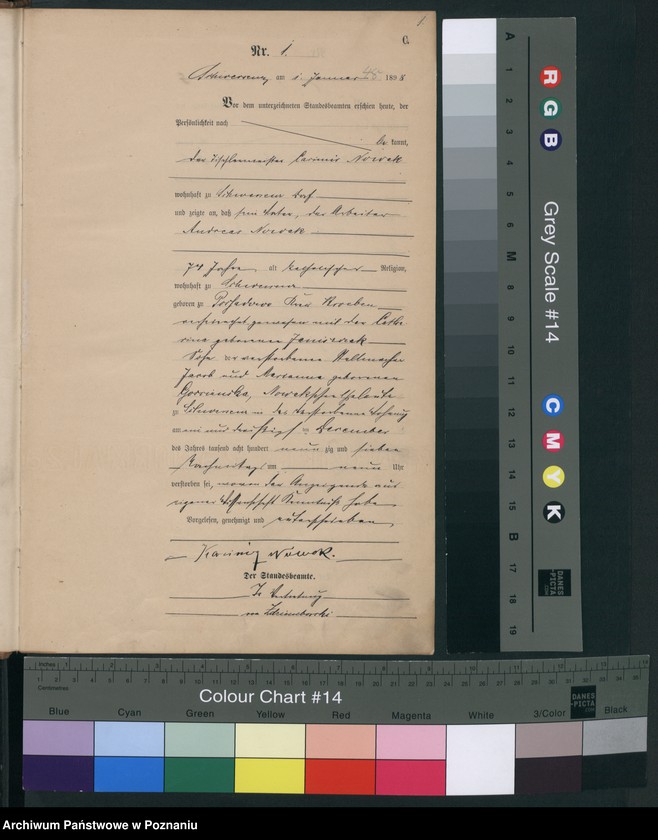 1.
C.
Nr. 1.
Schwersenz, am 1. Januar 1898
Vor dem unterzeichneten Standesbeamten erschien heute, der
Persönlichkeit nach
be kannt,
der Tischlermeister Casimir Nowak
wohnhaft zu Schwersenz Dorf
und zeigte an, daß sein Vater, der Arbeiter
Andreas Nowak
Jahre, alt katholischer Religion,
wohnhaft zu Schwersenz
geboren zu Kreis
verheirathet gewesen mit der Catha
rina geborenen Janiszewsk
Sohn der verstorbenen
Jacob und Marianna geborenen
Nowakschen Eheleute
zu Schwersenz in des Verstorbenen Wohnung
am ein und dreißigsten December
des Jahres tausend acht hundert neun zig und sieben
Nachmittags um neun Uhr
verstorben sei, wovon der Anzeigende aus
eigener Wissenschaft Kenntniß habe.
Vorgelesen, genehmigt und unterschrieben
Kazimierz Nowak.
Der Standesbeamte.
In Vertretung
A
1
2
3
4
5
6
M
8
9
10
11
12
13
14
15
B
17
18
19
R
G
B
C
M
Y
K
Grey Scale #14
DANES
PICTA
.COM
Inches
Centimetres
Colour Chart #14
DANES
PICTA
.COM
Blue Cyan Green Yellow Red Magenta White 3/Color Black
Archiwum Państwowe w Poznaniu